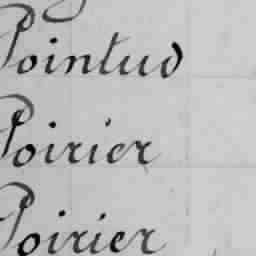 Pointud
Poirier
Poirier